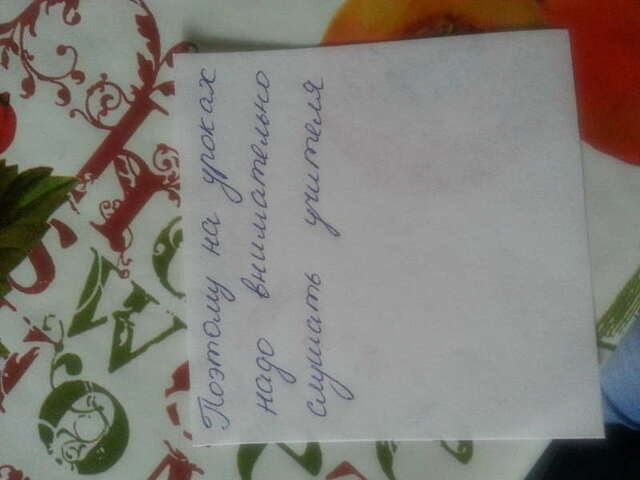 Поэтому на уроках
надо внимательно
слушать учителя